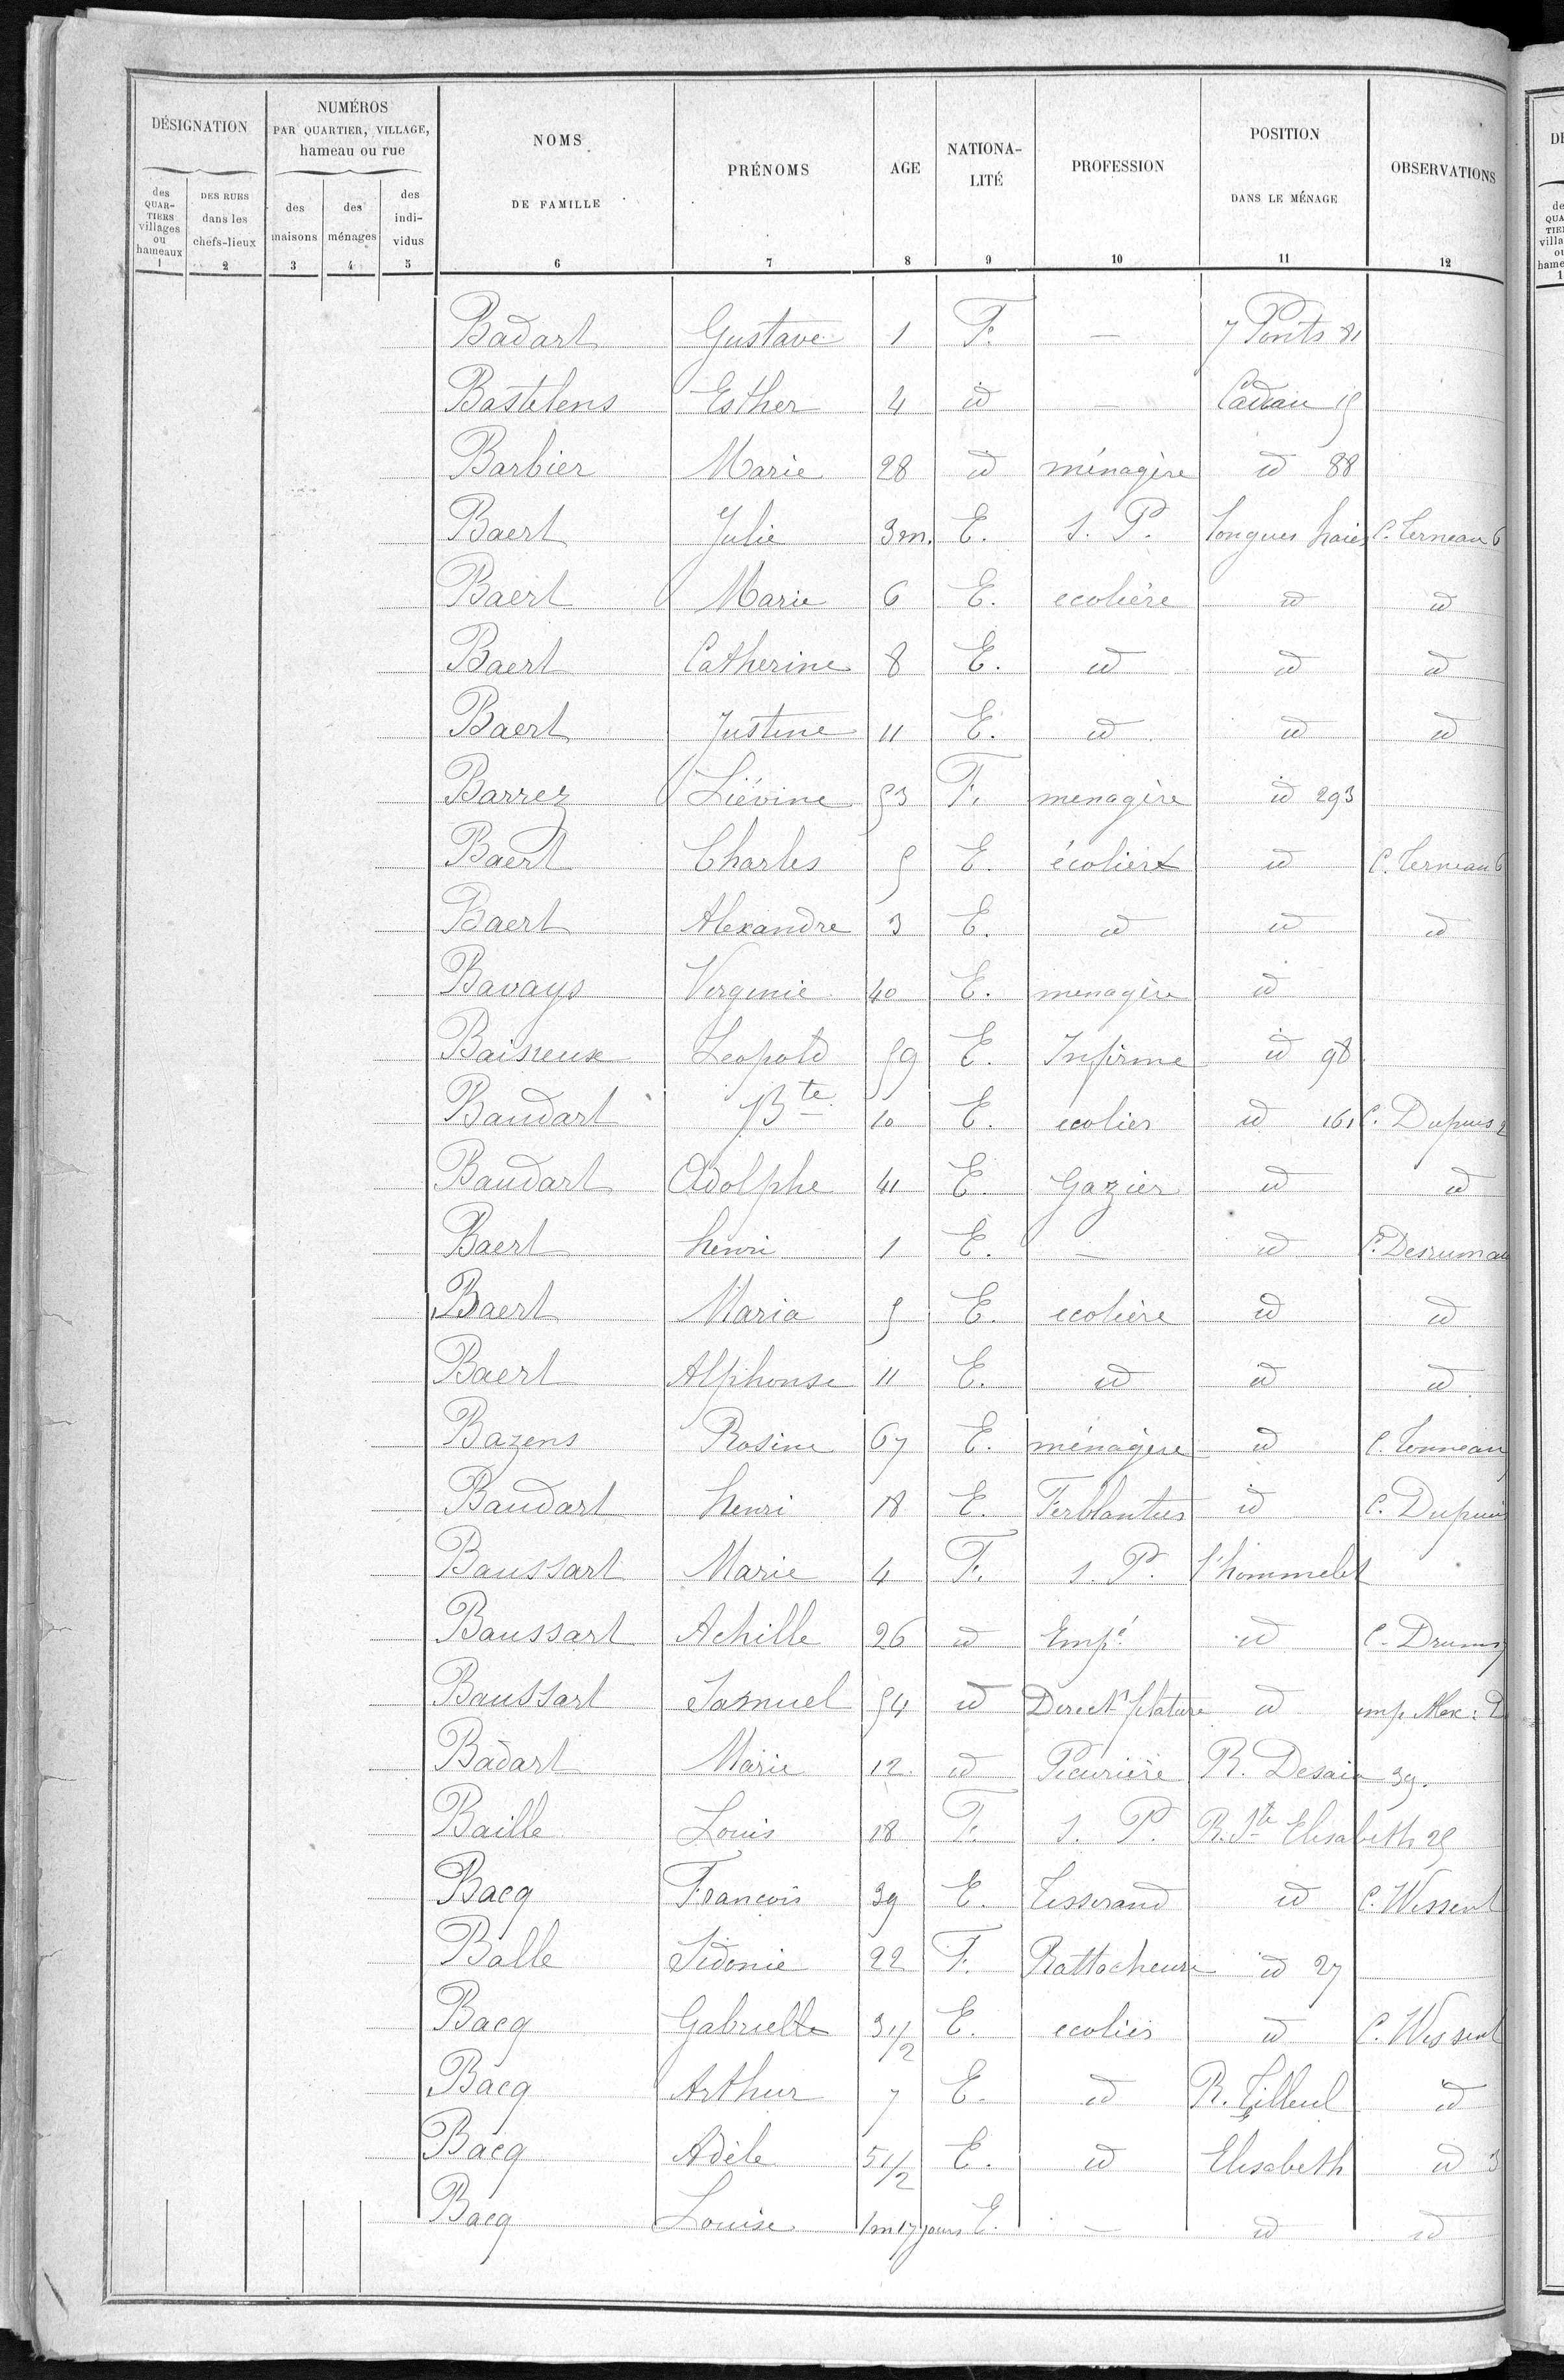 DÉSIGNATION
NUMÉROS
PAR QUARTIER, VILLAGE,
hameau ou rue
NOMS
DE FAMILLE
PRÉNOMS
AGE
NATIONA-
LITÉ
PROFESSION
POSITION
DANS LE MÉNAGE
OBSERVATIONS
des
QUAR-
TIERS
villages
ou
hameaux
DES RUES
dans les
chefs-lieux
des
maisons
des
ménages
des
indi-
vidus
1 2 3 4 5 6 7 8 9 10 11 12
Badart Gustave 1 F. — 7 Ponts 81
Bastelens Esther 4 id — Cadeau 15
Barbier Marie 28 id ménagère id 88
Baert Julie 3m. E. s. P. Longues haies C. Terneau 6
Baert Marie 6 E. ecolière id id
Baert Catherine 8 E. id id id
Baert Justine 11 E. id id id
Barrez Liévine 53 F. menagère id 293
Baert Charles 5 E. écolier id C. Terneau 6
Baert Alexandre 3 E. id id id
Bavays Vergenie 40 E. menagère id
Baisieux Leopold 59 E. Infirme id 98
Baudart Bte 10 E. ecolier id 161 C. Dupuis 2
Baudart Adolphe 41 E. Gazier id id
Baert henri 1 E. — id C. Desrumau
Baert Maria 5 E. ecolière id id
Baert Alphonse 11 E. id id id
Bazens Rosine 67 E. ménagère id C. Terneau
Baudart henri 18 E. Ferblantier id C. Dupuis
Baussart Marie 4 F. s. P. l'hommelet
Baussart Achille 26 id Empé id
Baussart Samuel 54 id Direct filature id imp Alex. D
Badart Marie 12 id R. Desaix 39.
Baille Louis 18 F. s. P. R. Ste Elisabeth 25
Bacq Francois 39 E. Tisserand id C. Wissent
Balle Sidonie 22 F. Rattacheuse id 27
Bacq Gabrielle 3 1/2 E. ecolier id C. Wissent
Bacq Arthur 7 E. id R. Tilleul id
Bacq Adèle 5 1/2 E. id Elisabeth id 3
Bacq Louise 1m 17 jours E. — id id